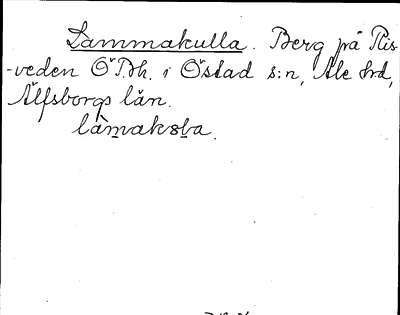 Lammakulla. Berg på Ris-
-veden Ö Bh. i Östad s:n, Ale hrd,
Älfsborgs län.
làmaksba.